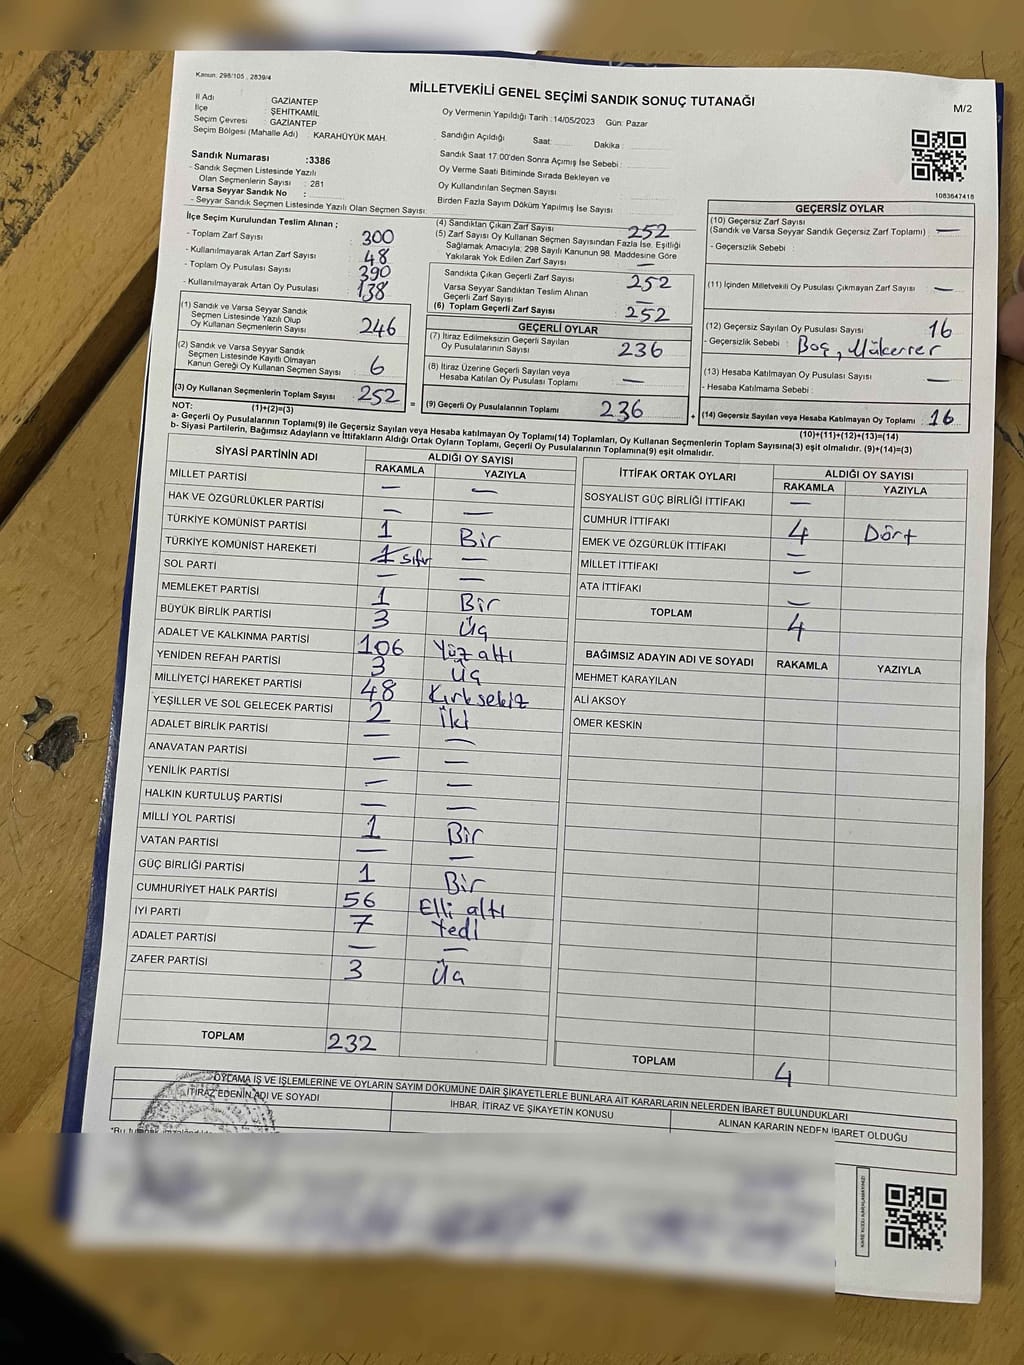 Kanun: 298/105 , 2839/4
MİLLETVEKİLİ GENEL SEÇİMİ SANDIK SONUÇ TUTANAĞI
M/2
İl Adı GAZİANTEP
İlçe ŞEHİTKAMİL
Seçim Çevresi : GAZİANTEP
Seçim Bölgesi (Mahalle Adı) : KARAHÜYÜK MAH.
Oy Vermenin Yapıldığı Tarih : 14/05/2023 Gün: Pazar
Sandığın Açıldığı Saat: Dakika :
Sandık Saat 17:00'den Sonra Açımış İse Sebebi :
Oy Verme Saati Bitiminde Sırada Bekleyen ve
Oy Kullandırılan Seçmen Sayısı
Birden Fazla Sayım Döküm Yapılmış İse Sayısı :
1083647416
Sandık Numarası :3386
- Sandık Seçmen Listesinde Yazılı
Olan Seçmenlerin Sayısı : 281
Varsa Seyyar Sandık No :
- Seyyar Sandık Seçmen Listesinde Yazılı Olan Seçmen Sayısı:
İlçe Seçim Kurulundan Teslim Alınan ;
- Toplam Zarf Sayısı : 300
- Kullanılmayarak Artan Zarf Sayısı : 48
- Toplam Oy Pusulası Sayısı : 390
- Kullanılmayarak Artan Oy Pusulası : 138
(1) Sandık ve Varsa Seyyar Sandık
Seçmen Listesinde Yazılı Olup
Oy Kullanan Seçmenlerin Sayısı : 246
(2) Sandık ve Varsa Seyyar Sandık
Seçmen Listesinde Kayıtlı Olmayan
Kanun Gereği Oy Kullanan Seçmen Sayısı : 6
(3) Oy Kullanan Seçmenlerin Toplam Sayısı : 252 =
(1)+(2)=(3)
(4) Sandıktan Çıkan Zarf Sayısı : 252
(5) Zarf Sayısı Oy Kullanan Seçmen Sayısından Fazla İse, Eşitliği
Sağlamak Amacıyla; 298 Sayılı Kanunun 98. Maddesine Göre
Yakılarak Yok Edilen Zarf Sayısı : —
Sandıkta Çıkan Geçerli Zarf Sayısı : 252
Varsa Seyyar Sandıktan Teslim Alınan
Geçerli Zarf Sayısı : —
(6) Toplam Geçerli Zarf Sayısı : 252
GEÇERLİ OYLAR
(7) İtiraz Edilmeksizin Geçerli Sayılan
Oy Pusulalarının Sayısı : 236
(8) İtiraz Üzerine Geçerli Sayılan veya
Hesaba Katılan Oy Pusulası Toplamı : —
(9) Geçerli Oy Pusulalarının Toplamı : 236 +
GEÇERSİZ OYLAR
(10) Geçersiz Zarf Sayısı
(Sandık ve Varsa Seyyar Sandık Geçersiz Zarf Toplamı) : —
- Geçersizlik Sebebi :
(11) İçinden Milletvekili Oy Pusulası Çıkmayan Zarf Sayısı : —
(12) Geçersiz Sayılan Oy Pusulası Sayısı : 16
- Geçersizlik Sebebi : Boş, Mükerrer
(13) Hesaba Katılmayan Oy Pusulası Sayısı : —
- Hesaba Katılmama Sebebi :
(14) Geçersiz Sayılan veya Hesaba Katılmayan Oy Pusulası Toplamı : 16
(10)+(11)+(12)+(13)=(14)
NOT:
a- Geçerli Oy Pusulaları Toplamı(9) ile Geçersiz Sayılan veya Hesaba katılmayan Oy Toplamı(14) Toplamları, Oy Kullanan Seçmenlerin Toplam Sayısına(3) eşit olmalıdır. (9)+(14)=(3)
b- Siyasi Partilerin, Bağımsız Adayların ve İttifakların Aldığı Ortak Oyların Toplamı, Geçerli Oy Pusulalarının Toplamına(9) eşit olmalıdır.
SİYASİ PARTİNİN ADI ALDIĞI OY SAYISI
RAKAMLA YAZIYLA
MİLLET PARTİSİ — —
HAK VE ÖZGÜRLÜKLER PARTİSİ — —
TÜRKİYE KOMÜNİST PARTİSİ 1 Bir
TÜRKİYE KOMÜNİST HAREKETİ 1 sıfır —
SOL PARTİ — —
MEMLEKET PARTİSİ 1 Bir
BÜYÜK BİRLİK PARTİSİ 3 Üç
ADALET VE KALKINMA PARTİSİ 106 Yüz altı
YENİDEN REFAH PARTİSİ 3 Üç
MİLLİYETÇİ HAREKET PARTİSİ 48 Kırk sekiz
YEŞİLLER VE SOL GELECEK PARTİSİ 2 İki
ADALET BİRLİK PARTİSİ — —
ANAVATAN PARTİSİ — —
YENİLİK PARTİSİ — —
HALKIN KURTULUŞ PARTİSİ — —
MİLLİ YOL PARTİSİ 1 Bir
VATAN PARTİSİ — —
GÜÇ BİRLİĞİ PARTİSİ 1 Bir
CUMHURİYET HALK PARTİSİ 56 Elli altı
İYİ PARTİ 7 Yedi
ADALET PARTİSİ — —
ZAFER PARTİSİ 3 Üç
TOPLAM 232
İTTİFAK ORTAK OYLARI ALDIĞI OY SAYISI
RAKAMLA YAZIYLA
SOSYALİST GÜÇ BİRLİĞİ İTTİFAKI —
CUMHUR İTTİFAKI 4 Dört
EMEK VE ÖZGÜRLÜK İTTİFAKI —
MİLLET İTTİFAKI —
ATA İTTİFAKI —
TOPLAM 4
BAĞIMSIZ ADAYIN ADI VE SOYADI RAKAMLA YAZIYLA
MEHMET KARAYILAN
ALİ AKSOY
ÖMER KESKİN
TOPLAM 4
OYLAMA İŞ VE İŞLEMLERİNE VE OYLARIN SAYIM DÖKÜMÜNE DAİR ŞİKAYETLERLE BUNLARA AİT KARARLARIN NELERDEN İBARET BULUNDUKLARI
İTİRAZ EDENİN ADI VE SOYADI
İHBAR, İTİRAZ VE ŞİKAYETİN KONUSU
ALINAN KARARIN NEDEN İBARET OLDUĞU